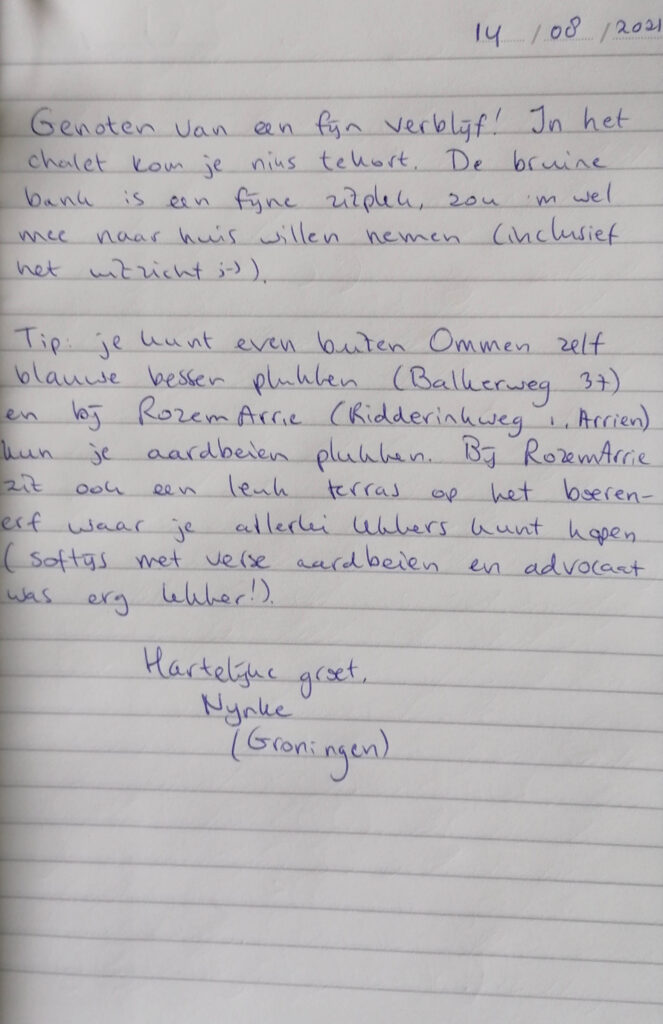 14 / 08 / 2021
Genoten van een fijn verblijf! In het
chalet kom je niks tekort. De bruine
bank is een fijne zitplek, zou 'm wel
mee naar huis willen nemen (inclusief
het uitzicht ;-)).
Tip: je kunt even buiten Ommen zelf
blauwe bessen plukken (Balkerweg 37)
en bij RozemArrie (Ridderinkweg 1, Arrien)
kun je aardbeien plukken. Bij RozemArrie
zit ook een leuk terras op het boeren-
erf waar je allerlei lekkers kunt kopen
(softijs met verse aardbeien en advocaat
was erg lekker!).
Hartelijke groet,
Nynke
(Groningen)